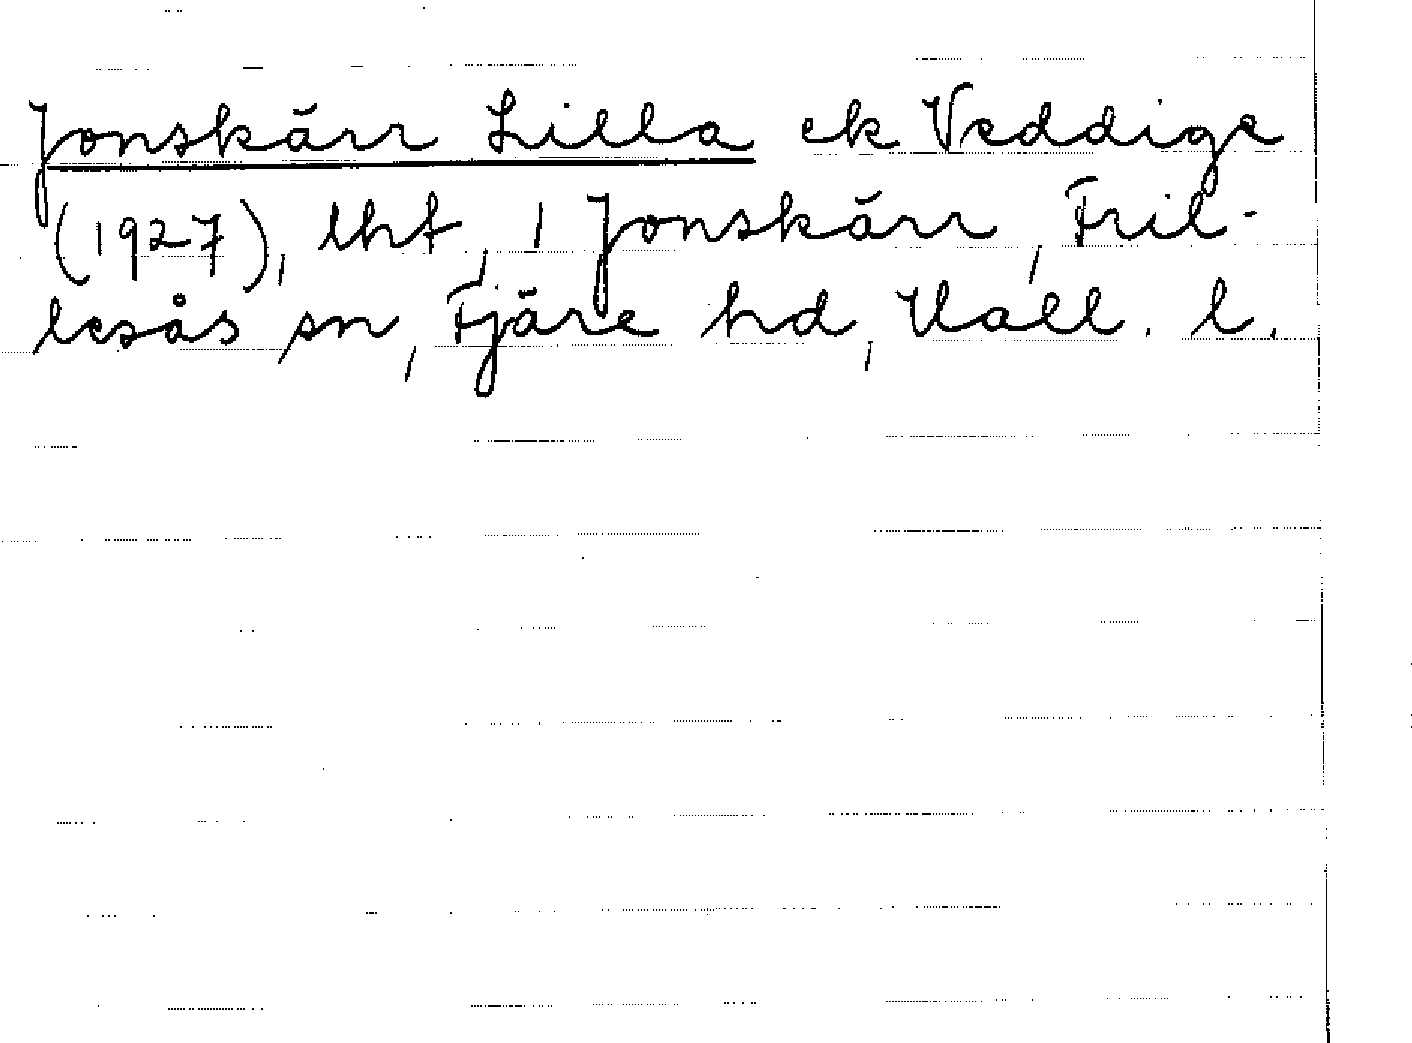 Jonskärr Lilla ek Veddige
(1927), lht, 1 Jonskärr, Fril-
lesås sn, Fjäre hd, Hall. l.